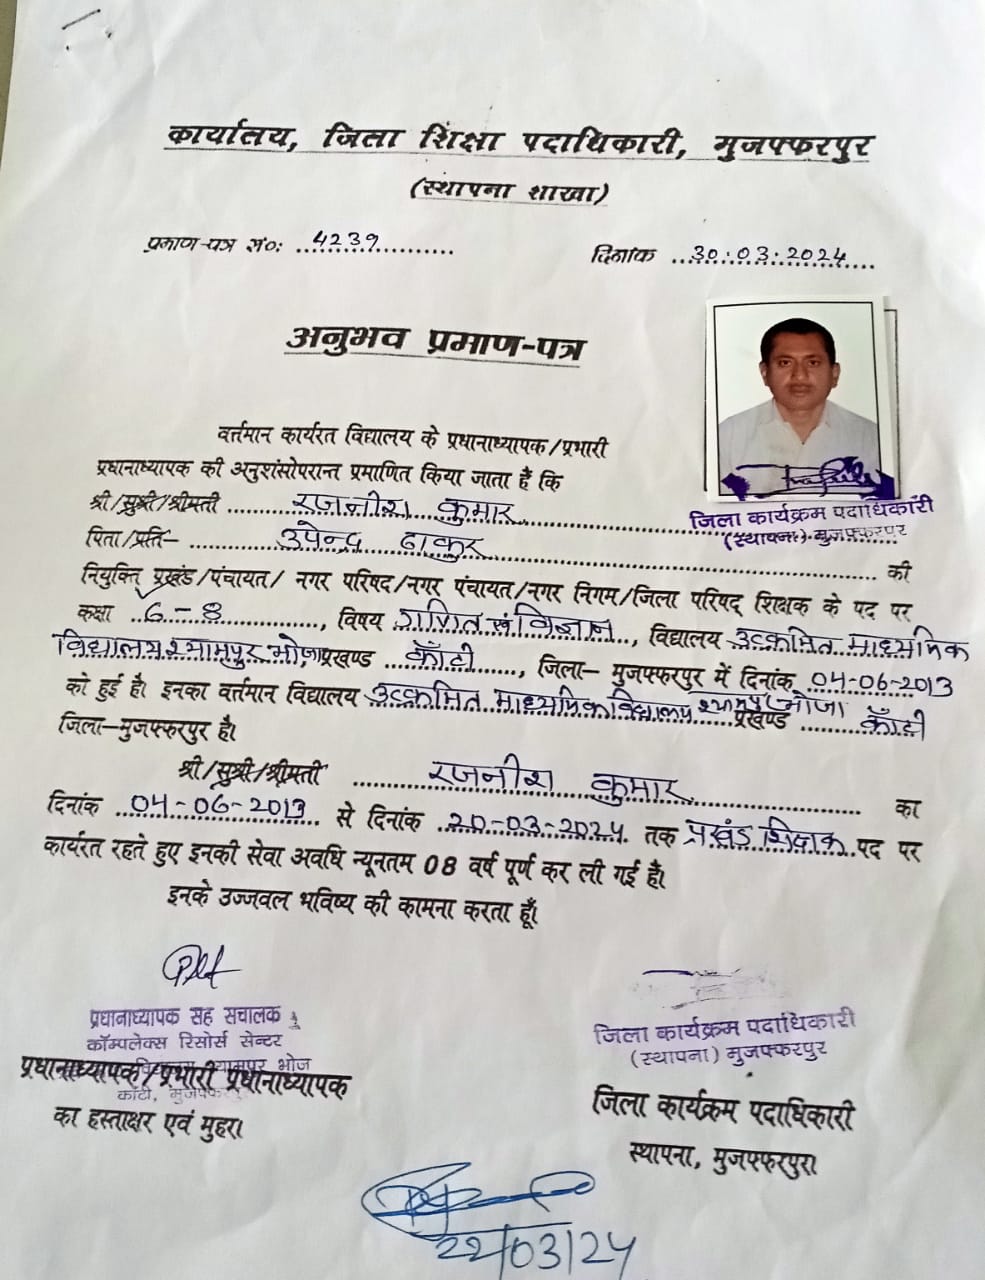 कार्यालय, जिला शिक्षा पदाधिकारी, मुजफ्फरपुर
(स्थापना शाखा)
प्रमाण-पत्र सं०: ..4239..........
दिनांक ..30.03.2024....
अनुभव प्रमाण-पत्र
वर्त्तमान कार्यरत विद्यालय के प्रधानाध्यापक/प्रभारी
प्रधानाध्यापक की अनुशंसोपरान्त प्रमाणित किया जाता है कि
श्री/सुश्री/श्रीमती ........रजनीश कुमार........
जिला कार्यक्रम पदाधिकारी
(स्थापना) मुजफ्फरपुर
पिता/प्रति– ........उपेन्द्र ठाकुर........ की
नियुक्ति प्रखंड/पंचायत/ नगर परिषद/नगर पंचायत/नगर निगम/जिला परिषद् शिक्षक के पद पर
कक्षा ..6-8............, विषय गणित एवं विज्ञान.., विद्यालय उत्क्रमित माध्यमिक
विद्यालय श्यामपुर भोजा प्रखण्ड ..काँटी....., जिला– मुजफ्फरपुर में दिनांक 04-06-2013
को हुई है। इनका वर्त्तमान विद्यालय उत्क्रमित माध्यमिक विद्यालय श्यामपुर भोजा प्रखण्ड ........काँटी
जिला–मुजफ्फरपुर है।
श्री/सुश्री/श्रीमती ........रजनीश कुमार........ का
दिनांक ..04-06-2013.. से दिनांक ..20-03-2024. तक प्रखंड शिक्षक.. पद पर
कार्यरत रहते हुए इनकी सेवा अवधि न्यूनतम 08 वर्ष पूर्ण कर ली गई है।
इनके उज्जवल भविष्य की कामना करता हूँ।
प्रधानाध्यापक सह संचालक
कॉम्पलेक्स रिसोर्स सेन्टर
श्यामपुर भोज
काँटी, मुजफ्फरपुर
प्रधानाध्यापक/प्रभारी प्रधानाध्यापक
का हस्ताक्षर एवं मुहर।
जिला कार्यक्रम पदाधिकारी
(स्थापना) मुजफ्फरपुर
जिला कार्यक्रम पदाधिकारी
स्थापना, मुजफ्फरपुर।
22/03/24